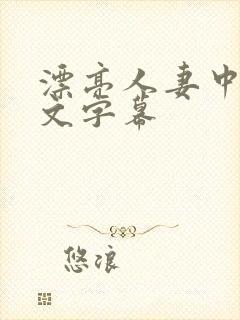 漂亮人妻中
文字幕
悠浪